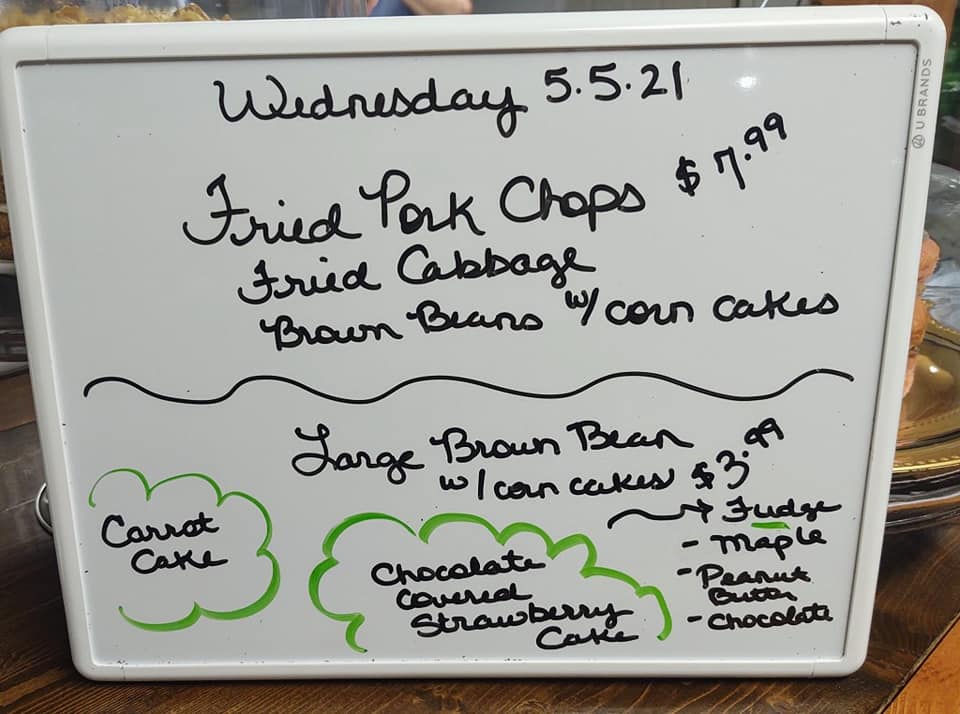 U BRANDS
Wednesday 5.5.21
Fried Pork Chops $7.99
Fried Cabbage
Brown Beans w/ corn cakes
Large Brown Bean
w/ corn cakes $3.99
Carrot
Cake
Chocolate
Covered
Strawberry
Cake
Fudge
- Maple
- Peanut
Butter
- Chocolate